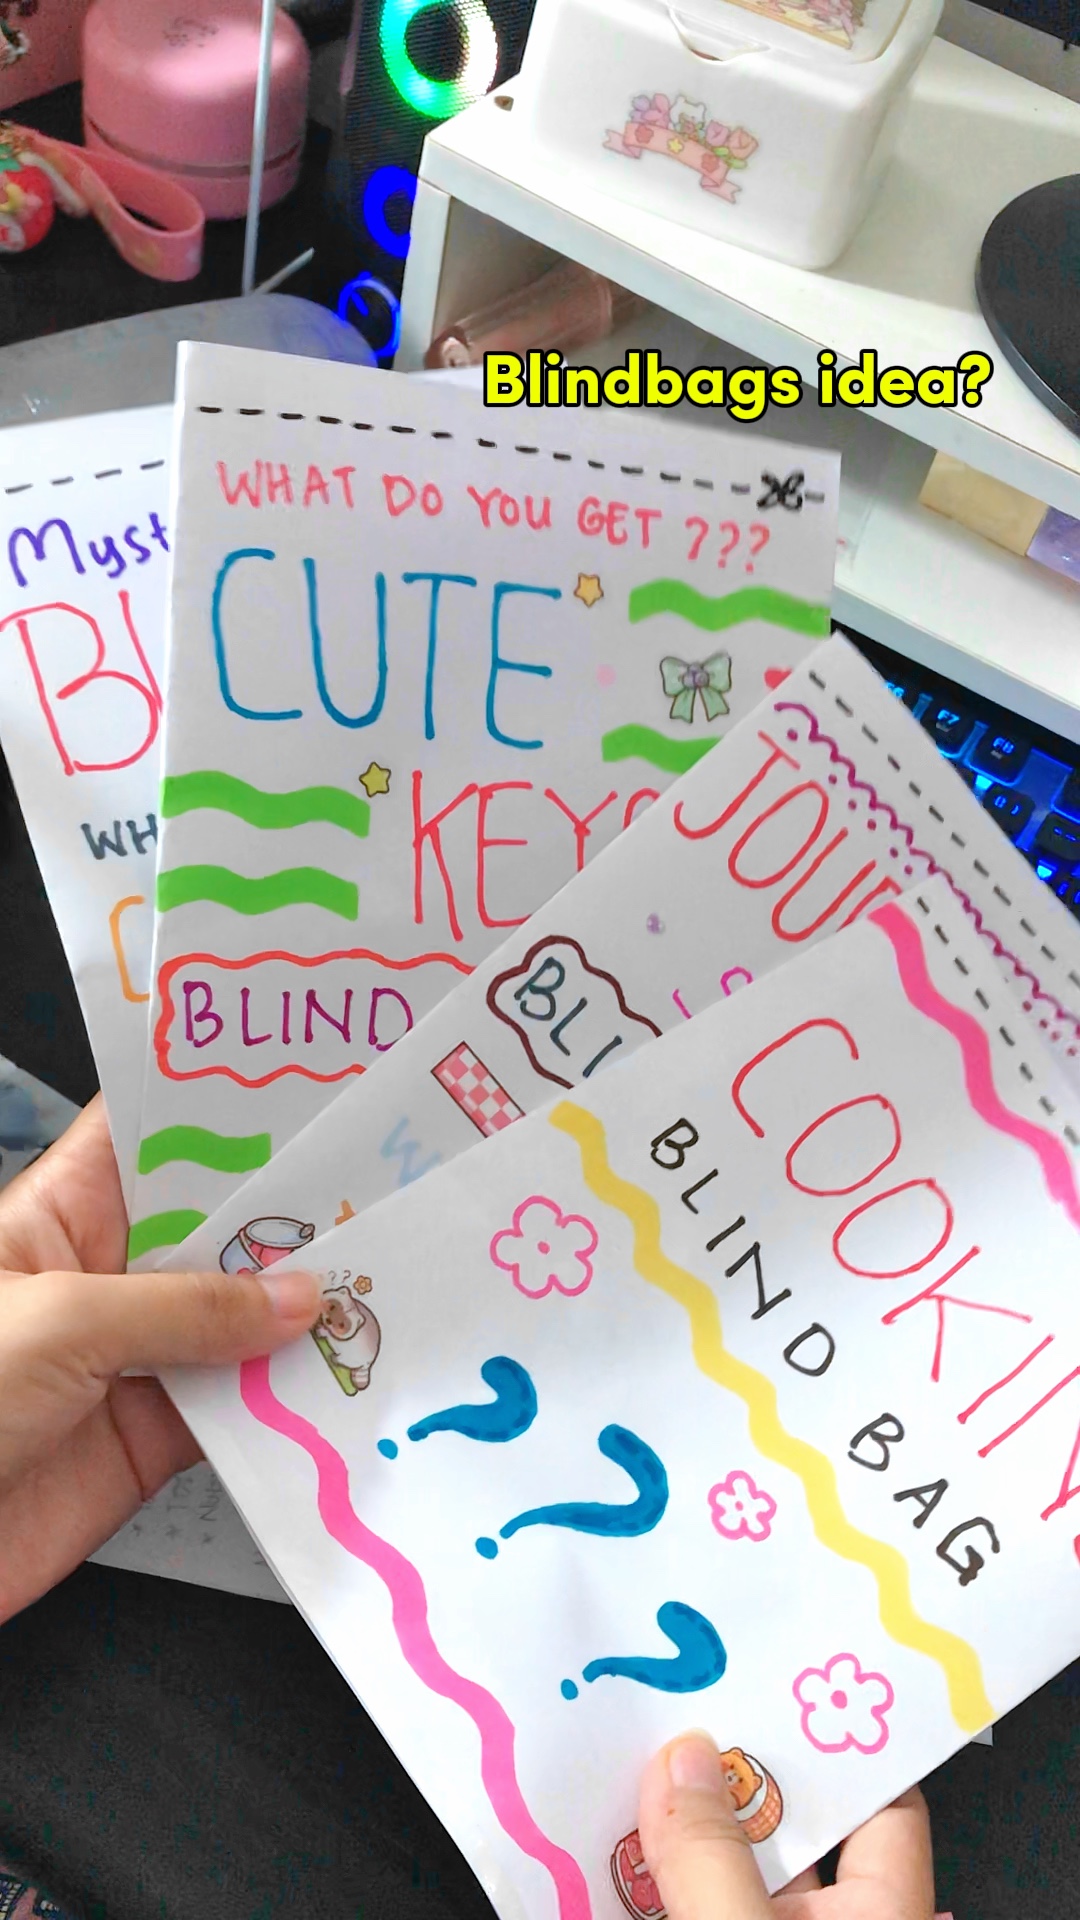 Blindbags idea?
Myst
BL
WH
WHAT DO YOU GET ???
CUTE
KEYC
BLIND
JOUR
BLI
COOKIN
BLIND BAG
? ? ?
F7
F8